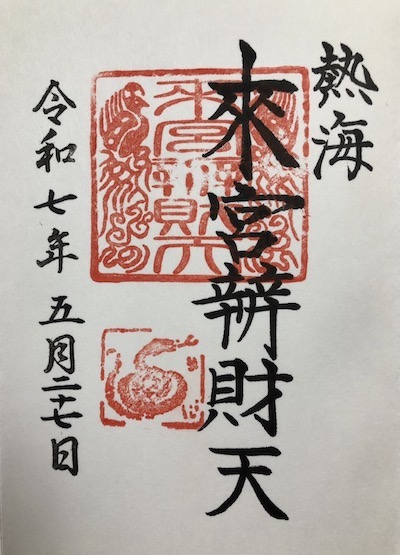 熱海
來宮辨財天
来宮辨財天
令和七年 五月二十七日